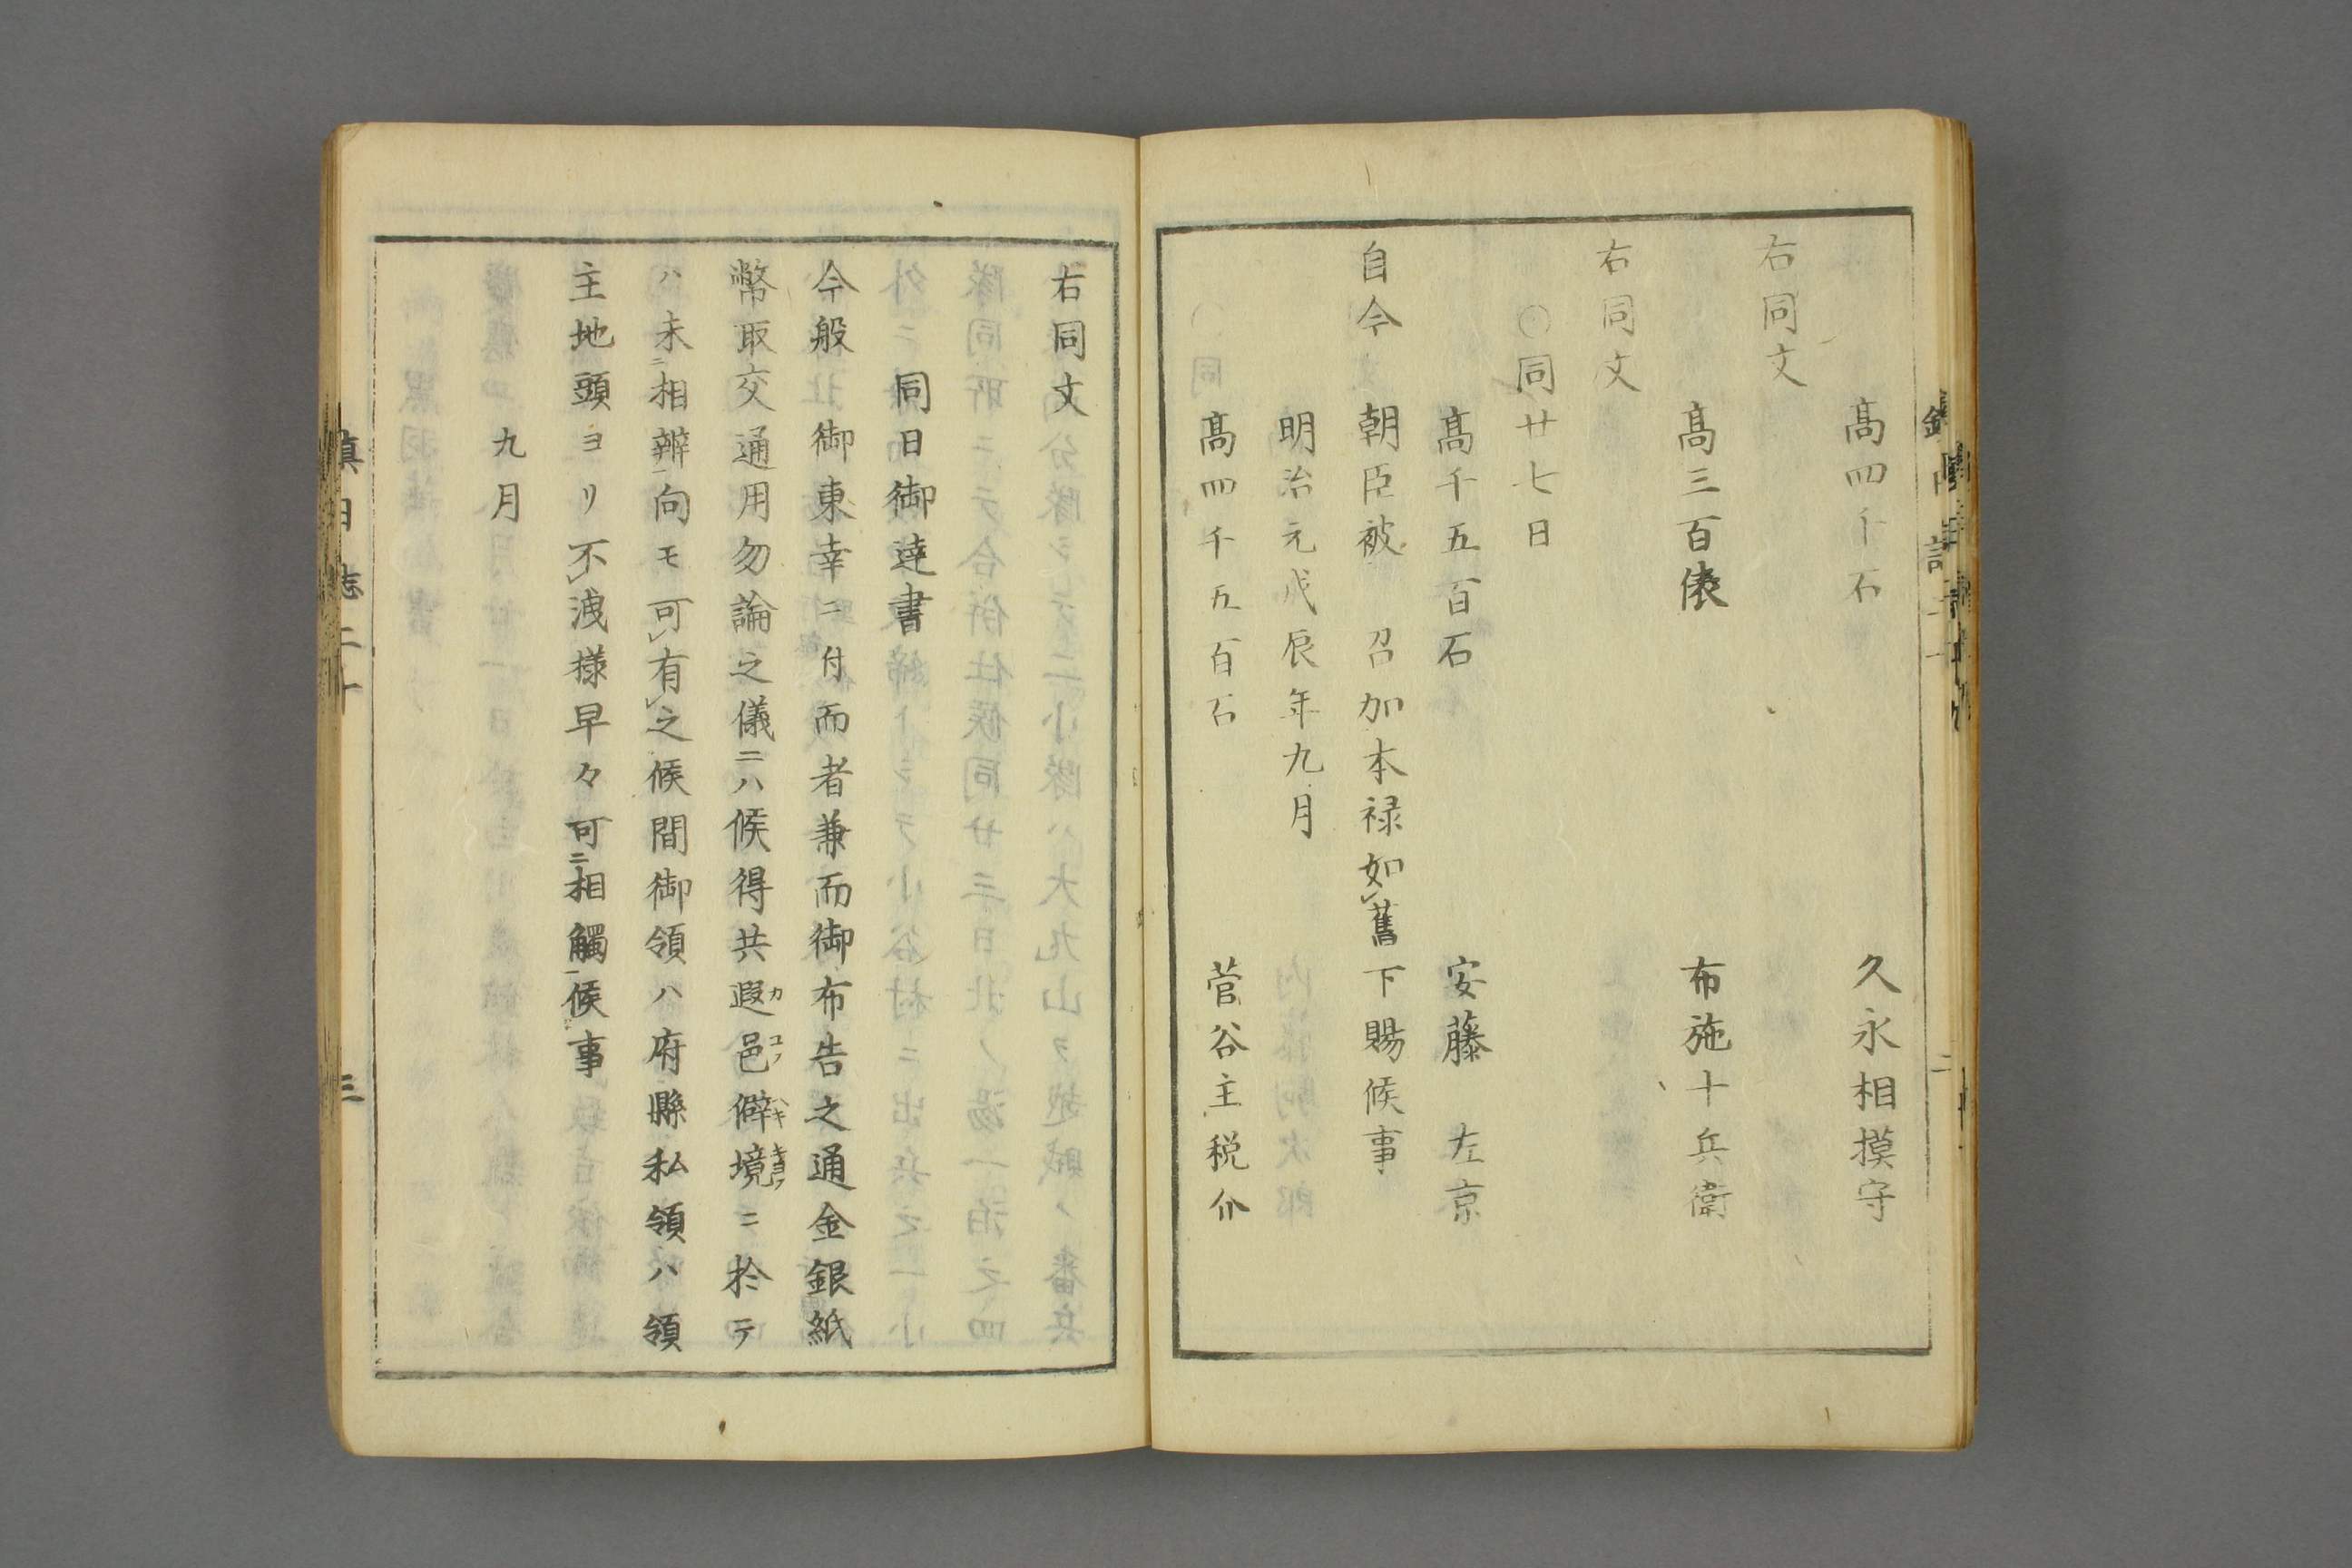 高四千石　久永相摸守
右同文
高三百俵　布施十兵衛
右同文
○同廿七日
高千五百石　安藤左京
自今　朝臣被　召加本禄如舊下賜候事
明治元戊辰年九月
高四千五百石　菅谷主税介
右同文
同日御達書
今般　御東幸ニ付而者兼而御布告之通金銀紙
幣取交通用勿論之儀ニハ候得共遐邑僻境ニ於テ
カ　コフ　ヘキ　キヨフ
ハ未ニ相辨一向モ可レ有レ之候間御領ハ府縣私領ハ領
主地頭ヨリ不レ洩様早々可ニ相觸一候事
九月
鎮日誌二十　三